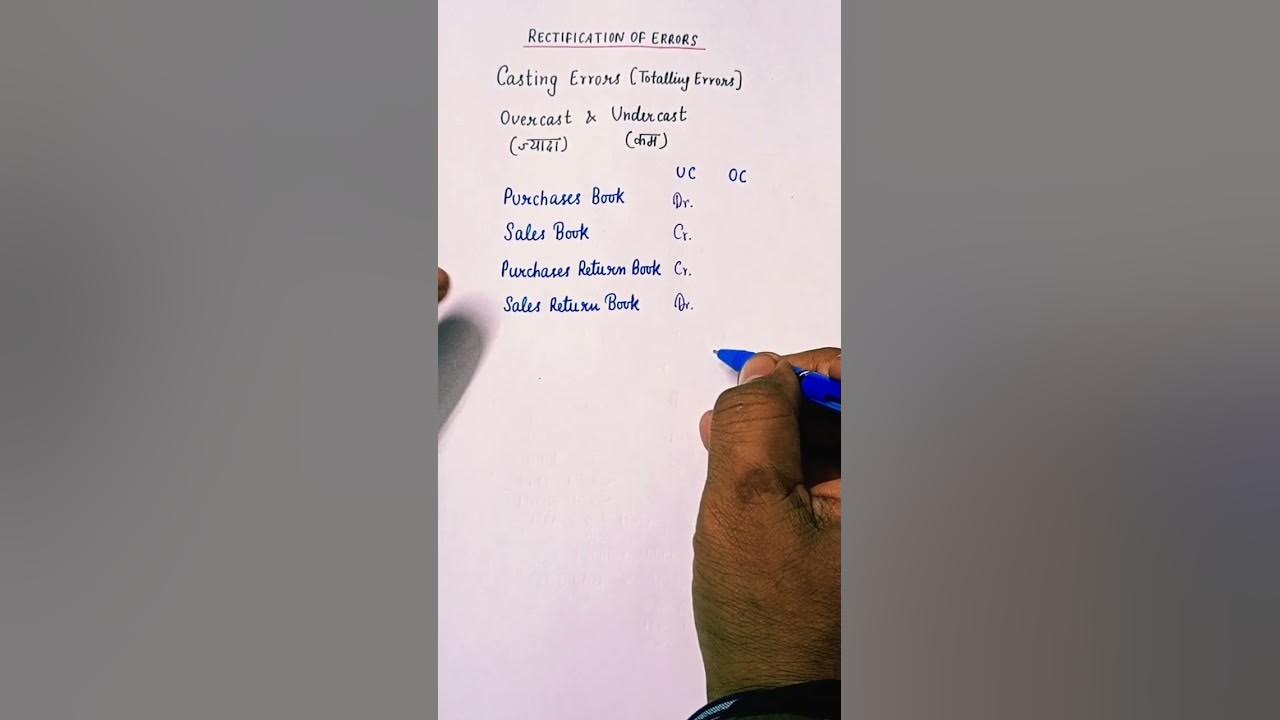 RECTIFICATION OF ERRORS
Casting Errors (Totalling Errors)
Overcast & Undercast
(ज्यादा) (कम)
UC OC
Purchases Book Dr.
Sales Book Cr.
Purchases Return Book Cr.
Sales Return Book Dr.